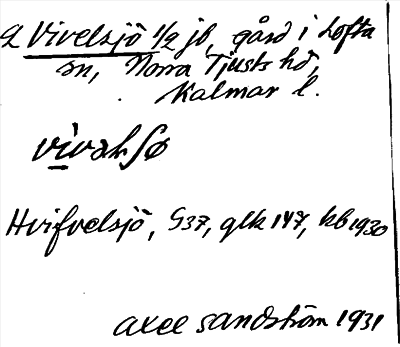 Vivelsjö 1/2 jb, gård i Lofta
sn, Norra Tjusts hd,
Kalmar l.
Hvifvelsjö, S37, glk 147, kb 1930
Axel Sandström 1931